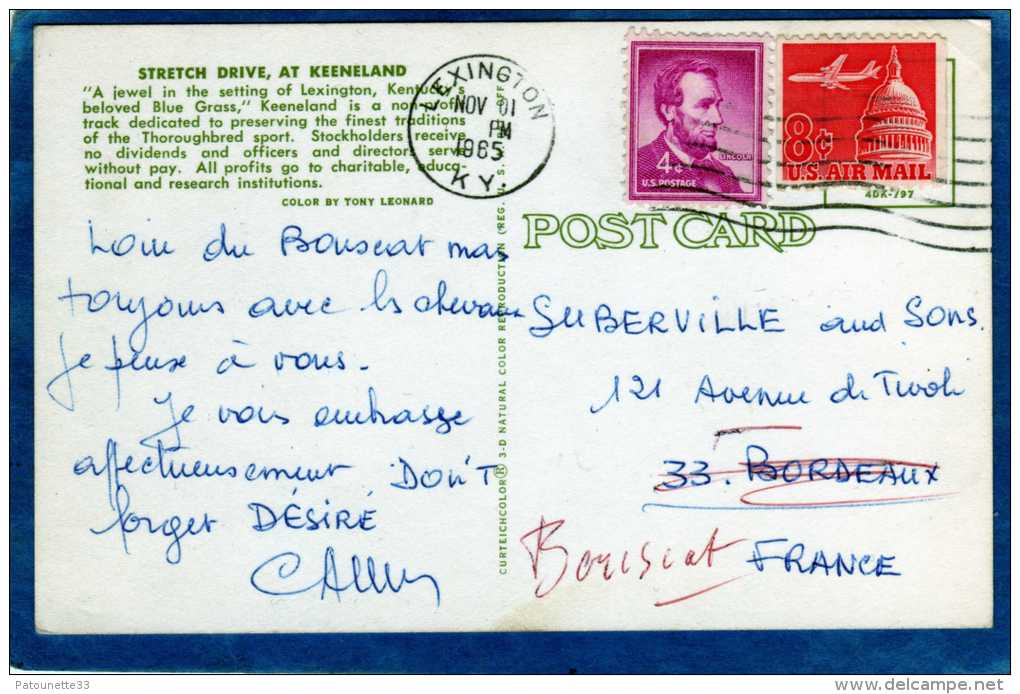 STRETCH DRIVE, AT KEENELAND
"A jewel in the setting of Lexington, Kentucky's
beloved Blue Grass," Keeneland is a non-profit
track dedicated to preserving the finest traditions
of the Thoroughbred sport. Stockholders receive
no dividends and officers and directors serve
without pay. All profits go to charitable, educa-
tional and research institutions.
COLOR BY TONY LEONARD
Loin du Bouscat mais
toujours avec les chevaux
je pense à vous.
Je vous embrasse
affectueusement DON'T
forget DÉSIRÉ
CURTEICHCOLOR® 3-D NATURAL COLOR REPRODUCTION (REG. U. S. OFF.
LEXINGTON
NOV 01
PM
1965
KY.
4¢
LINCOLN
U.S. POSTAGE
8¢
U.S. AIR MAIL
4DK-797
POST CARD
SUBERVILLE and Sons.
121 Avenue de Tivoli
33. BORDEAUX
Bouscat FRANCE
Patounette33
delcampe.net